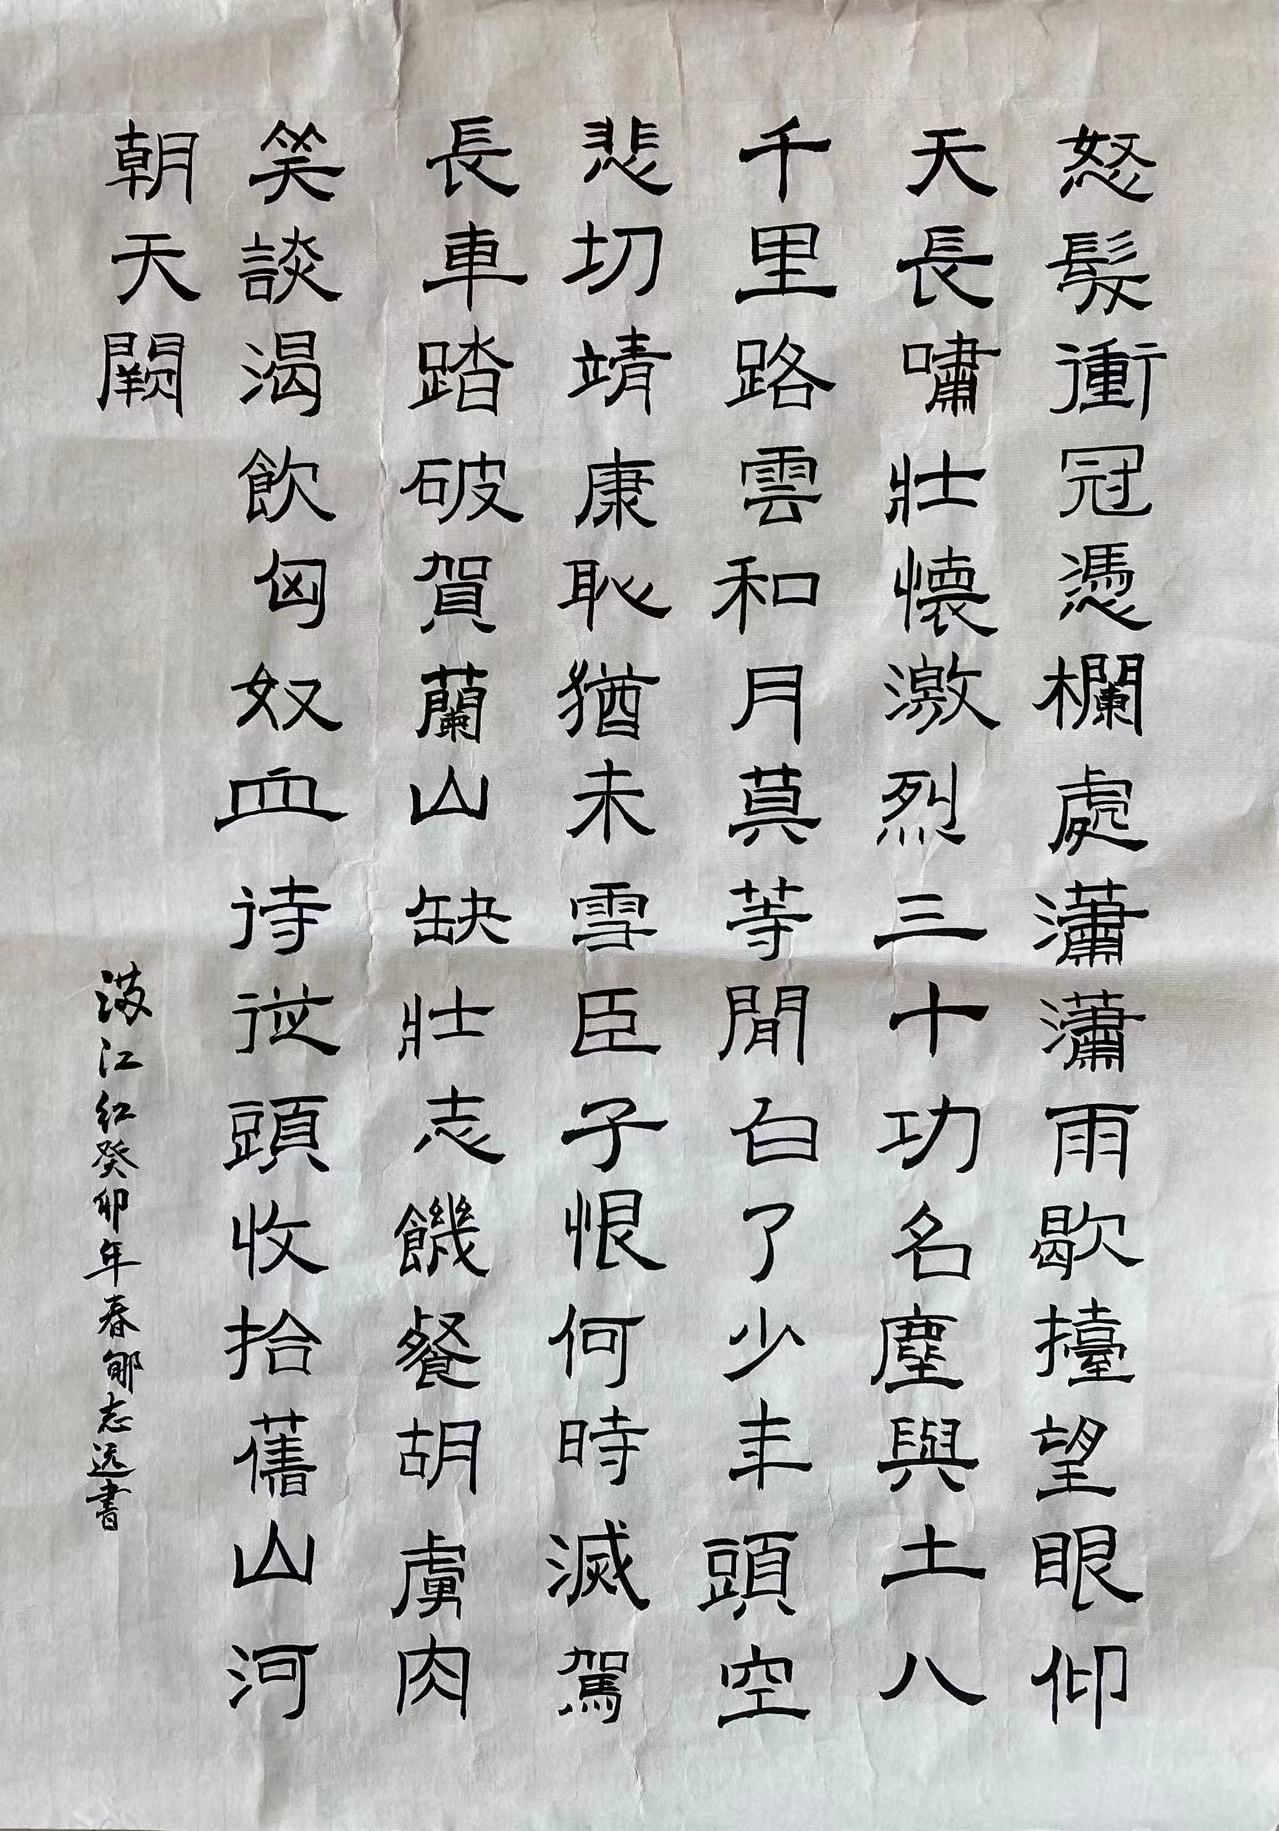 怒髮衝冠憑欄處瀟瀟雨歇擡望眼仰
天長嘯壯懷激烈三十功名塵與土八
千里路雲和月莫等閒白了少年頭空
悲切靖康恥猶未雪臣子恨何時滅駕
長車踏破賀蘭山缺壯志饑餐胡虜肉
笑談渴飲匈奴血待從頭收拾舊山河
朝天闕
滿江紅癸卯年春邹志远書